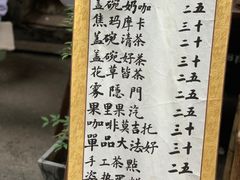 盖碗奶咖 二五
焦玛摩卡 三十
盖碗清茶 二十
盖碗好茶 三十
花草皆茶 二五
雾隐門 二五
果里果汽 二五
咖啡莫吉托 三十
單品大法好 三十
手工茶點 二五